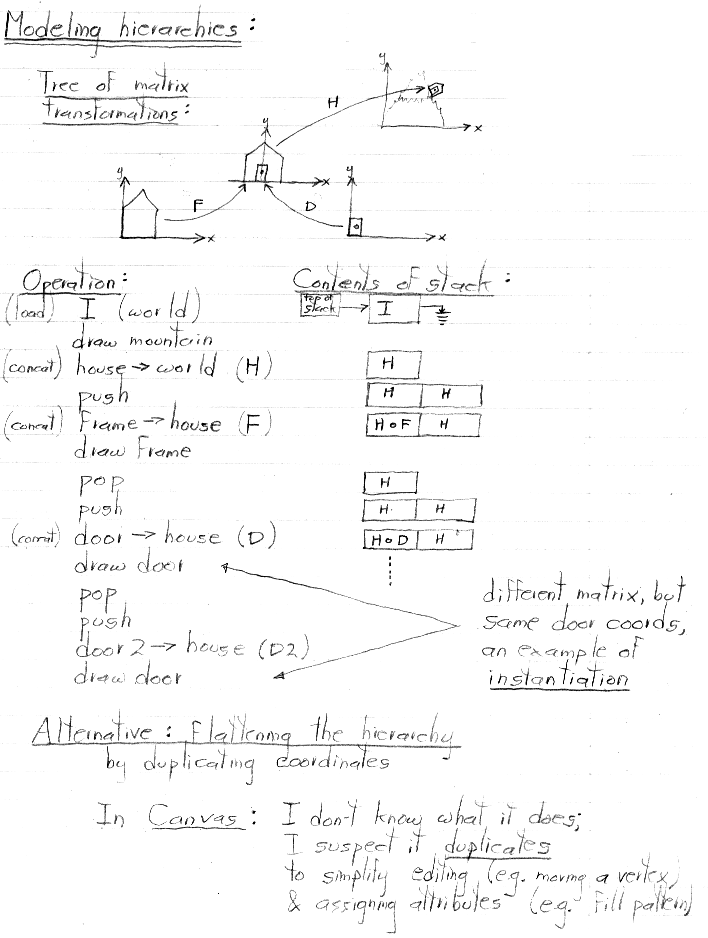 Modeling hierarchies:
Tree of matrix
transformations:
y
H
x
y
x
y
F
x
y
D
x
Operation:
Contents of stack:
(load) I (world)
top of
stack
I
draw mountain
(concat) house → world (H)
H
push
H H
(concat) Frame → house (F)
H∘F H
draw Frame
pop
H
push
H H
(concat) door → house (D)
H∘D H
draw door
pop
push
door 2 → house (D2)
draw door
different matrix, but
same door coords,
an example of
instantiation
Alternative: Flattening the hierarchy
by duplicating coordinates
In Canvas: I don't know what it does;
I suspect it duplicates
to simplify editing (e.g. moving a vertex)
& assigning attributes (e.g. Fill pattern)